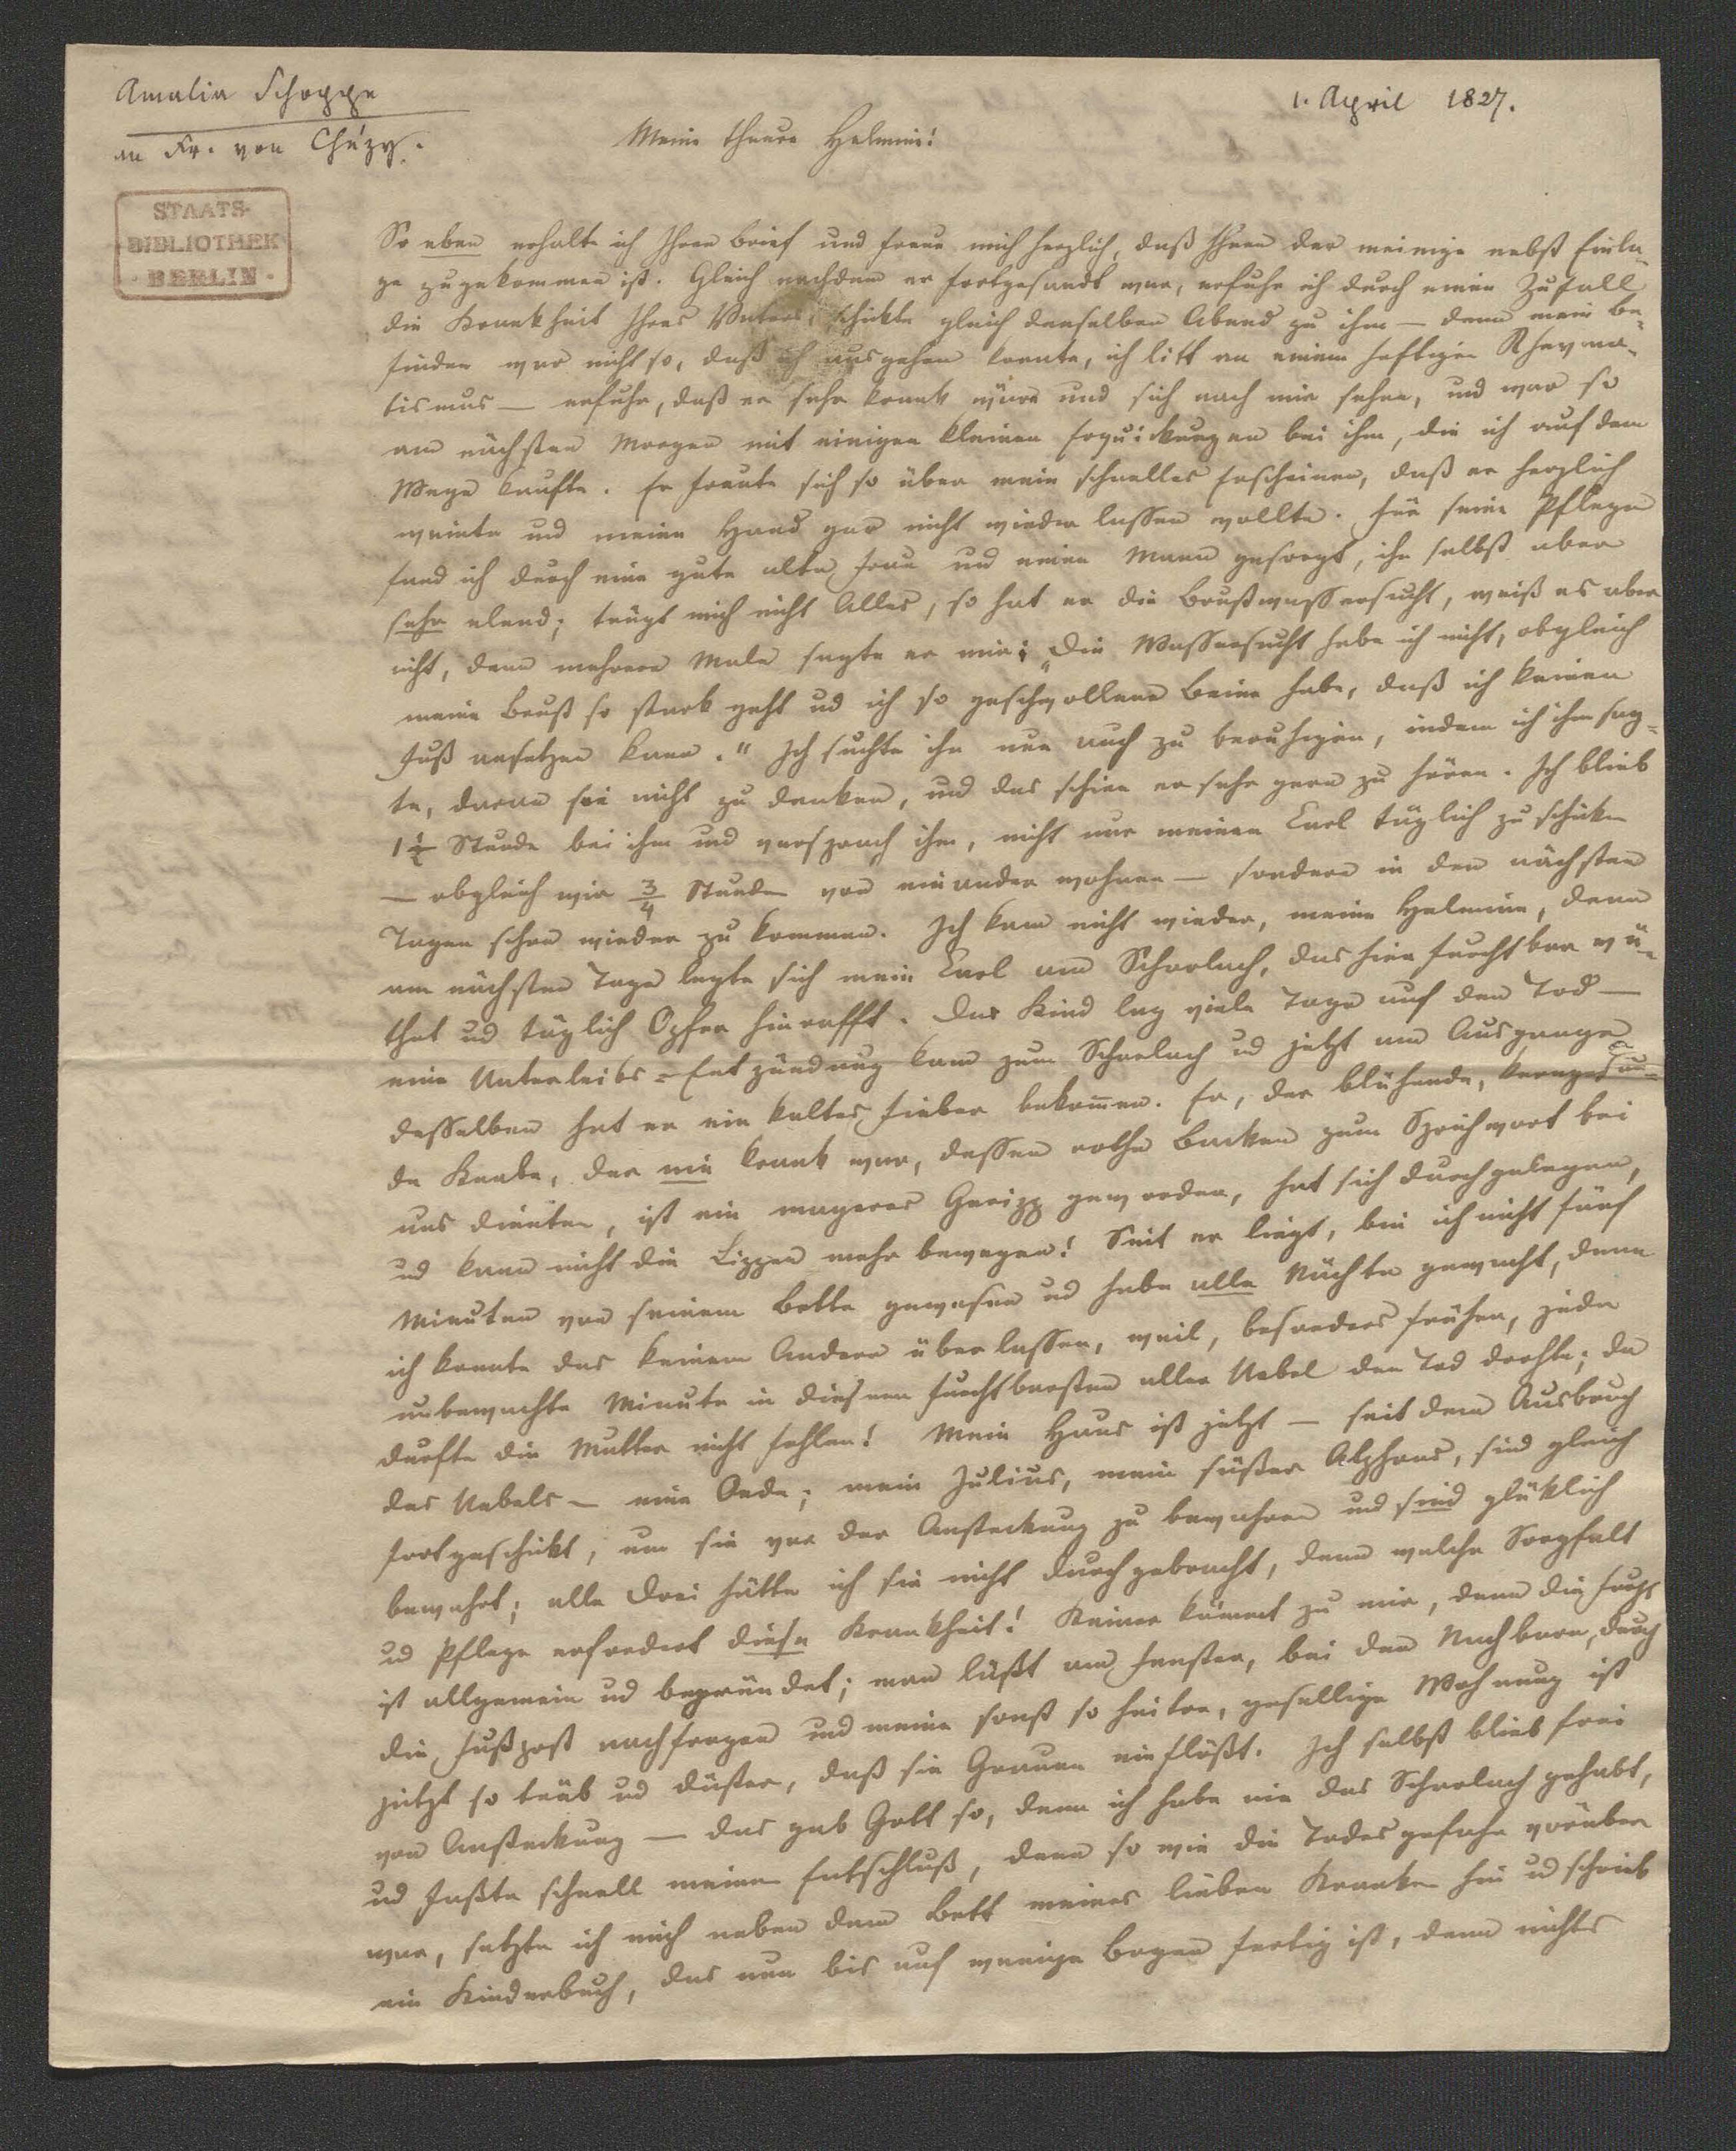 Amalia Schoppe
an Fr. von Chézy.
1. April 1827.
Meine theure Helmine!
STAATS-
BIBLIOTHEK
· BERLIN ·
So eben erhalte ich Ihren Brief und freue mich herzlich, daß Ihnen der meinige nebst Einla-
ge zugekommen ist. Gleich nachdem er fortgesandt war, erfuhr ich durch einen Zufall
die Krankheit Ihres Vaters, schickte gleich denselben Abend zu ihm — denn mein Be-
finden war nicht so, daß ich ausgehen konnte, ich litt an einem heftigen Rhevma-
tismus — erfuhr, daß er sehr krank wäre und sich nach mir sehne, und war so
am nächsten Morgen mit einigen kleinen Erquickungen bei ihm, die ich auf dem
Wege kaufte. Er freute sich so über mein schnelles Erscheinen, daß er herzlich
weinte und meine Hand gar nicht wieder lassen wollte. Für seine Pflege
fand ich durch eine gute alte Frau und einen Mann gesorgt, ihn selbst aber
sehr elend; trügt mich nicht Alles, so hat er die Brustwassersucht, weiß es aber
nicht, denn mehrere Male sagte er mir: „Die Wassersucht habe ich nicht, obgleich
meine Brust so stark geht ud ich so geschwollene Beine habe, daß ich keinen
Fuß ansetzen kann." Ich suchte ihn nun auch zu beruhigen, indem ich ihm sag-
te, daran sei nicht zu denken, und das schien er sehr gern zu hören. Ich blieb
1½ Stunde bei ihm und versprach ihm, nicht nur meinen Carl täglich zu schicken
— obgleich wir 3/4 Stunden von einander wohnen — sondern in den nächsten
Tagen schon wieder zu kommen. Ich kam nicht wieder, meine Helmine, denn
am nächsten Tage legte sich mein Carl am Scharlach, das hier furchtbar wü-
thet ud täglich Opfer hinrafft. Das Kind lag viele Tage auf den Tod —
eine Unterleibs-Entzündung kam zum Scharlach ud jetzt am Ausgange
desselben hat er ein kaltes Fieber bekommen. Er, der blühende, kerngesun-
de Knabe, der nie krank war, dessen rothe Backen zum Sprichwort bei
uns dienten, ist ein mageres Geripp geworden, hat sich durchgelegen,
ud kann nicht die Lippen mehr bewegen! Seit er liegt, bin ich nicht fünf
Minuten von seinem Bette gewesen ud habe alle Nächte gewacht, denn
ich konnte das keinem Andern überlassen, weil, besonders früher, jede
unbewachte Minute in diesem furchtbarsten aller Uebel den Tod drohte; da
durfte die Mutter nicht fehlen! Mein Haus ist jetzt — seit dem Ausbruch
des Uebels — eine Oede; mein Julius, mein süßer Alphons, sind gleich
fortgeschickt, um sie vor der Ansteckung zu bewahren und sind glücklich
bewahrt; alle drei hätte ich sie nicht durchgebracht, denn welche Sorgfalt
ud Pflege erfordert diese Krankheit! Keiner kömmt zu mir, denn die Furcht
ist allgemein ud begründet; man läßt am Fenster, bei den Nachbarn, durch
die Fußpost nachfragen und meine sonst so heitre, gesellige Wohnung ist
jetzt so trüb ud düster, daß sie Grauen einflößt. Ich selbst blieb frei
von Ansteckung — das gab Gott so, denn ich habe nie das Scharlach gehabt,
ud faßte schnell meinen Entschluß, denn so wie die Todesgefahr vorüber
war, setzte ich mich neben dem Bett meines lieben Kranken hin ud schrieb
ein Kinderbuch, das nun bis auf wenige Bogen fertig ist, denn nichts